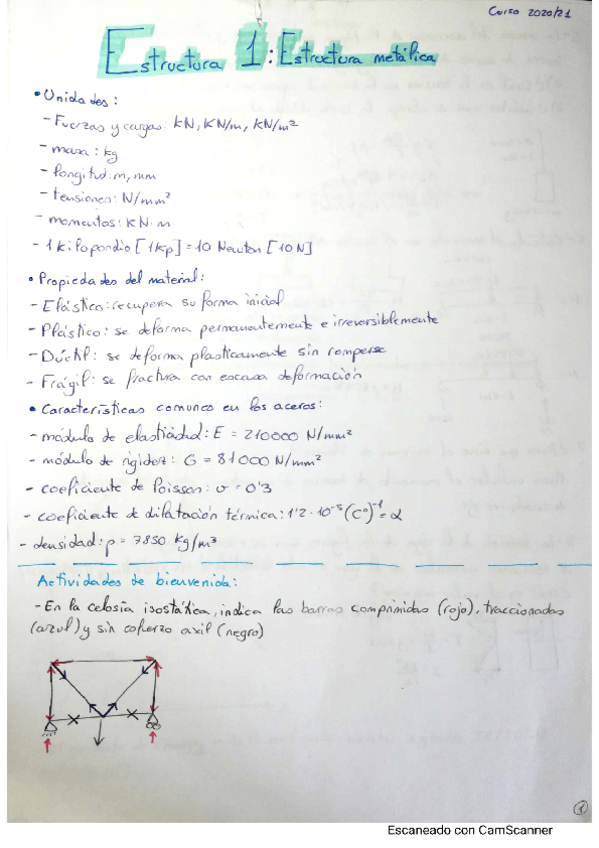 Curso 2020/21
Estructura 1: Estructura metálica
• Unidades:
- Fuerzas y cargas: kN, KN/m, kN/m²
- masa: kg
- longitud: m, mm
- tensiones: N/mm²
- momentos: KN·m
- 1 kilopondio [1Kp] = 10 Newton [10N]
• Propiedades del material:
- Elástica: recupera su forma inicial
- Plástico: se deforma permanentemente e irreversiblemente
- Dúctil: se deforma plasticamente sin romperse
- Frágil: se fractura con escasa deformación
• Características comunes en los aceros:
- módulo de elasticidad: E = 210000 N/mm²
- módulo de rigidez: G = 81000 N/mm²
- coeficiente de Poisson: υ = 0'3
- coeficiente de dilatación térmica: 1'2·10⁻⁵ (Cº)⁻¹ = α
- densidad: ρ = 7850 kg/m³
Actividades de bienvenida:
- En la celosía isostática, indica las barras comprimidas (rojo), traccionadas
(azul) y sin esfuerzo axil (negro)
1
Escaneado con CamScanner